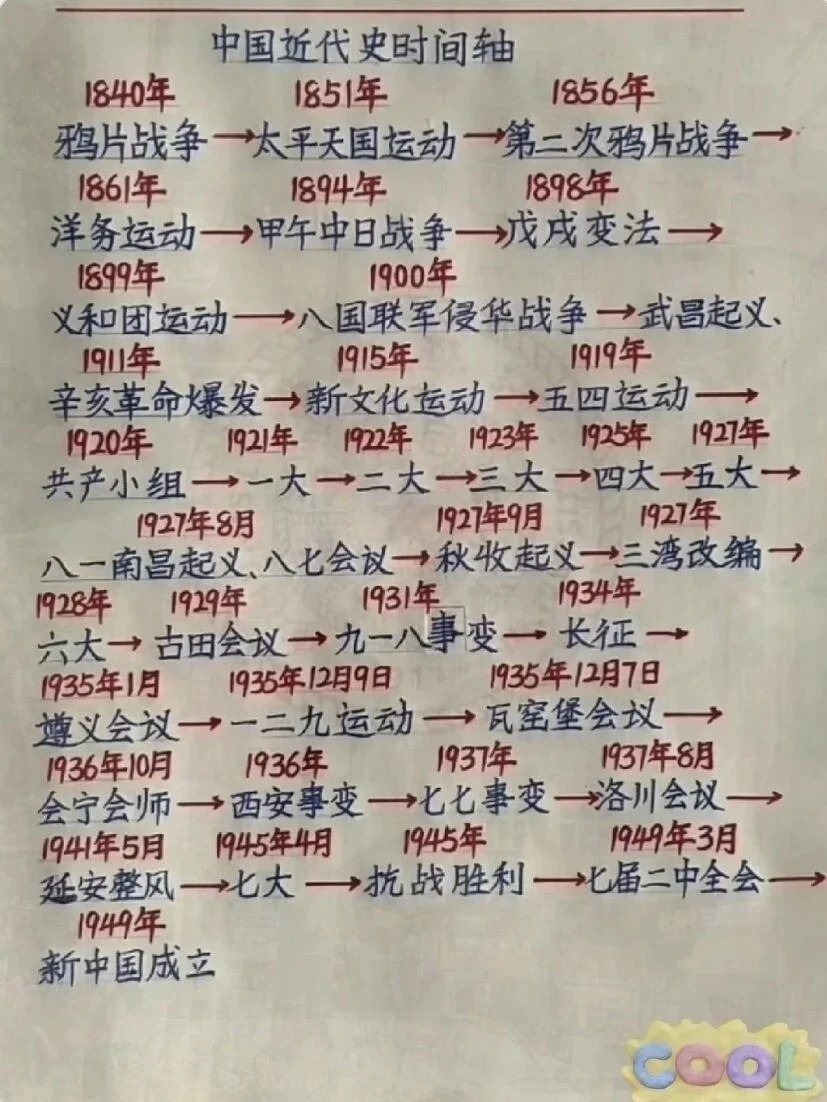 中国近代史时间轴
1840年 1851年 1856年
鸦片战争→太平天国运动→第二次鸦片战争→
1861年 1894年 1898年
洋务运动→甲午中日战争→戊戌变法→
1899年 1900年
义和团运动→八国联军侵华战争→武昌起义、
1911年 1915年 1919年
辛亥革命爆发→新文化运动→五四运动→
1920年 1921年 1922年 1923年 1925年 1927年
共产小组→一大→二大→三大→四大→五大→
1927年8月 1927年9月 1927年
八一南昌起义、八七会议→秋收起义→三湾改编→
1928年 1929年 1931年 1934年
六大→古田会议→九一八事变→长征→
1935年1月 1935年12月9日 1935年12月7日
遵义会议→一二九运动→瓦窑堡会议→
1936年10月 1936年 1937年 1937年8月
会宁会师→西安事变→七七事变→洛川会议→
1941年5月 1945年4月 1945年 1949年3月
延安整风→七大→抗战胜利→七届二中全会→
1949年
新中国成立
COOL